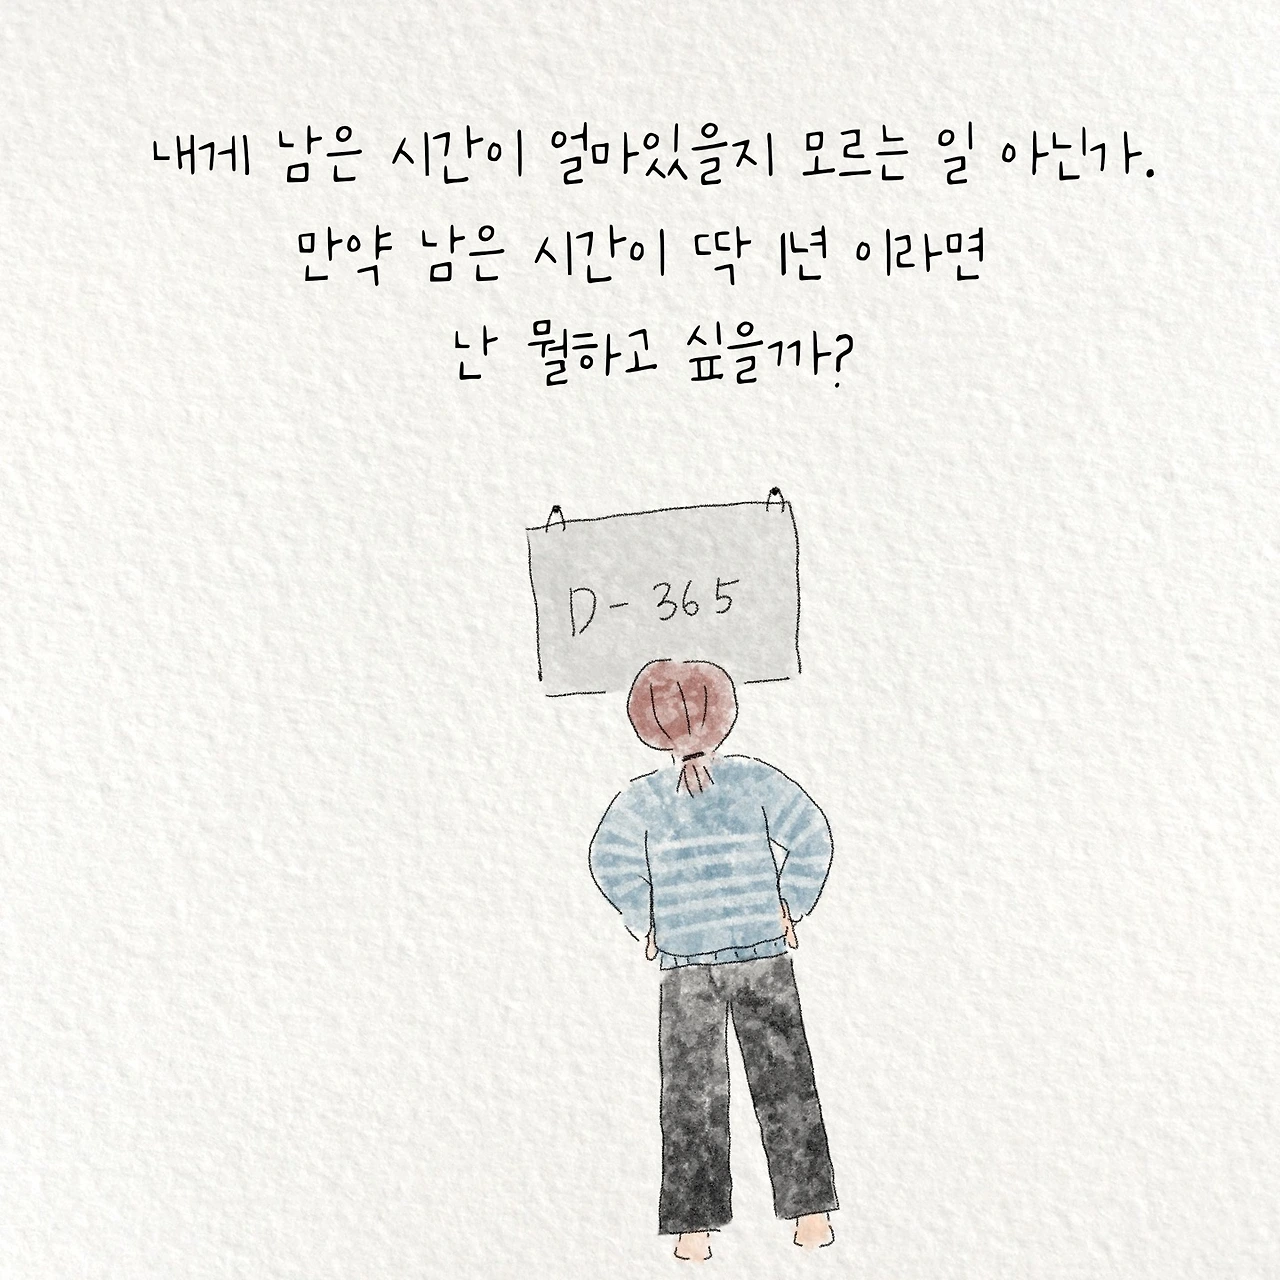 내게 남은 시간이 얼마있을지 모르는 일 아닌가.
만약 남은 시간이 딱 1년 이라면
난 뭘하고 싶을까?
D- 365